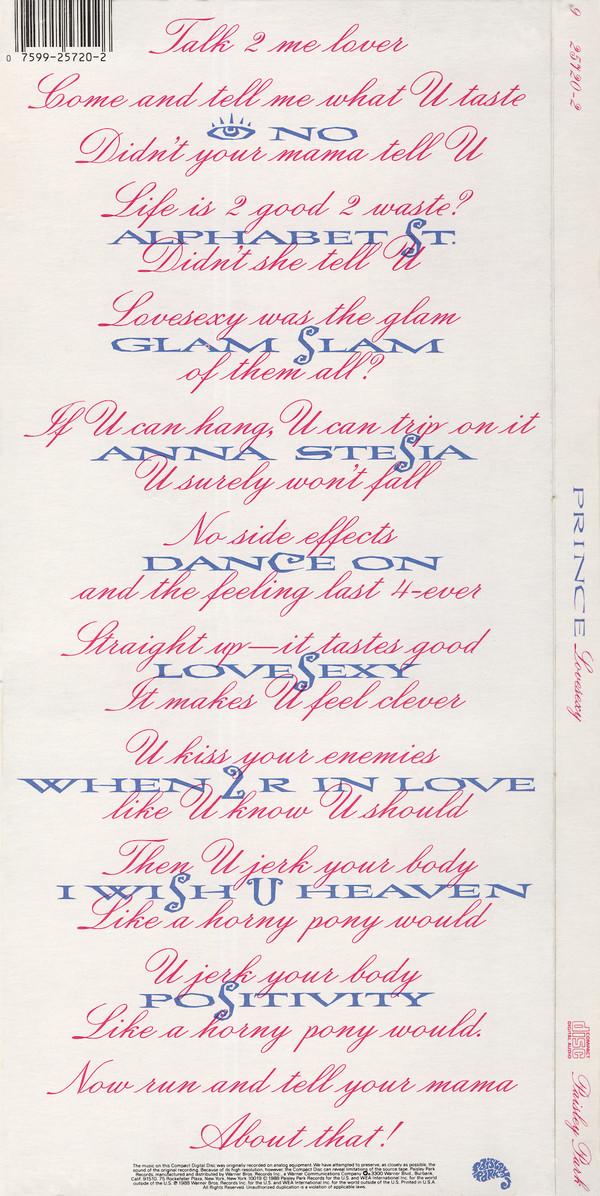 0 7599-25720-2
Talk 2 me lover
Come and tell me what U taste
👁 NO
Didn't your mama tell U
Life is 2 good 2 waste?
ALPHABET ST.
Didn't she tell U
Lovesexy was the glam
GLAM SLAM
of them all?
If U can hang, U can trip on it
ANNA STESIA
U surely won't fall
No side effects
DANCE ON
and the feeling last 4-ever
Straight up—it tastes good
LOVESEXY
It makes U feel clever
U kiss your enemies
WHEN 2 R IN LOVE
like U know U should
Then U jerk your body
I WISH U HEAVEN
Like a horny pony would
U jerk your body
POSITIVITY
Like a horny pony would.
Now run and tell your mama
About that!
The music on this Compact Digital Disc was originally recorded on analog equipment. We have attempted to preserve, as closely as possible, the
sound of the original recording. Because of its high resolution, however, the Compact Disc can reveal limitations of the source tape. Paisley Park
Records, manufactured and distributed by Warner Bros. Records Inc., a Warner Communications Company 3300 Warner Blvd., Burbank,
Calif. 91510. 75 Rockefeller Plaza, New York, New York 10019 © 1988 Paisley Park Records for the U.S. and WEA International Inc. for the world
outside of the U.S. ℗ 1988 Warner Bros. Records Inc. for the U.S. and WEA International Inc. for the world outside of the U.S. Printed in U.S.A.
All Rights Reserved. Unauthorized duplication is a violation of applicable laws.
PAISLEY PARK
9 25720-2
PRINCE Lovesexy
COMPACT
disc
DIGITAL AUDIO
Paisley Park